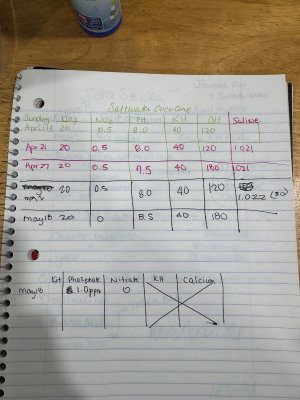 Saltwater Cococare
Sunday Day No3 PH KH GH Saline
April 13 20 0.5 8.0 40 120
Apr 21 20 0.5 8.0 40 120 1.021
Apr 27 20 0.5 7.5 40 180 1.021
20 0.5 8.0 40 120 1.022
May 18 20 0 8.5 40 180
Kit Phosphate Nitrate KH Calcium
May 18 1.0ppm 0